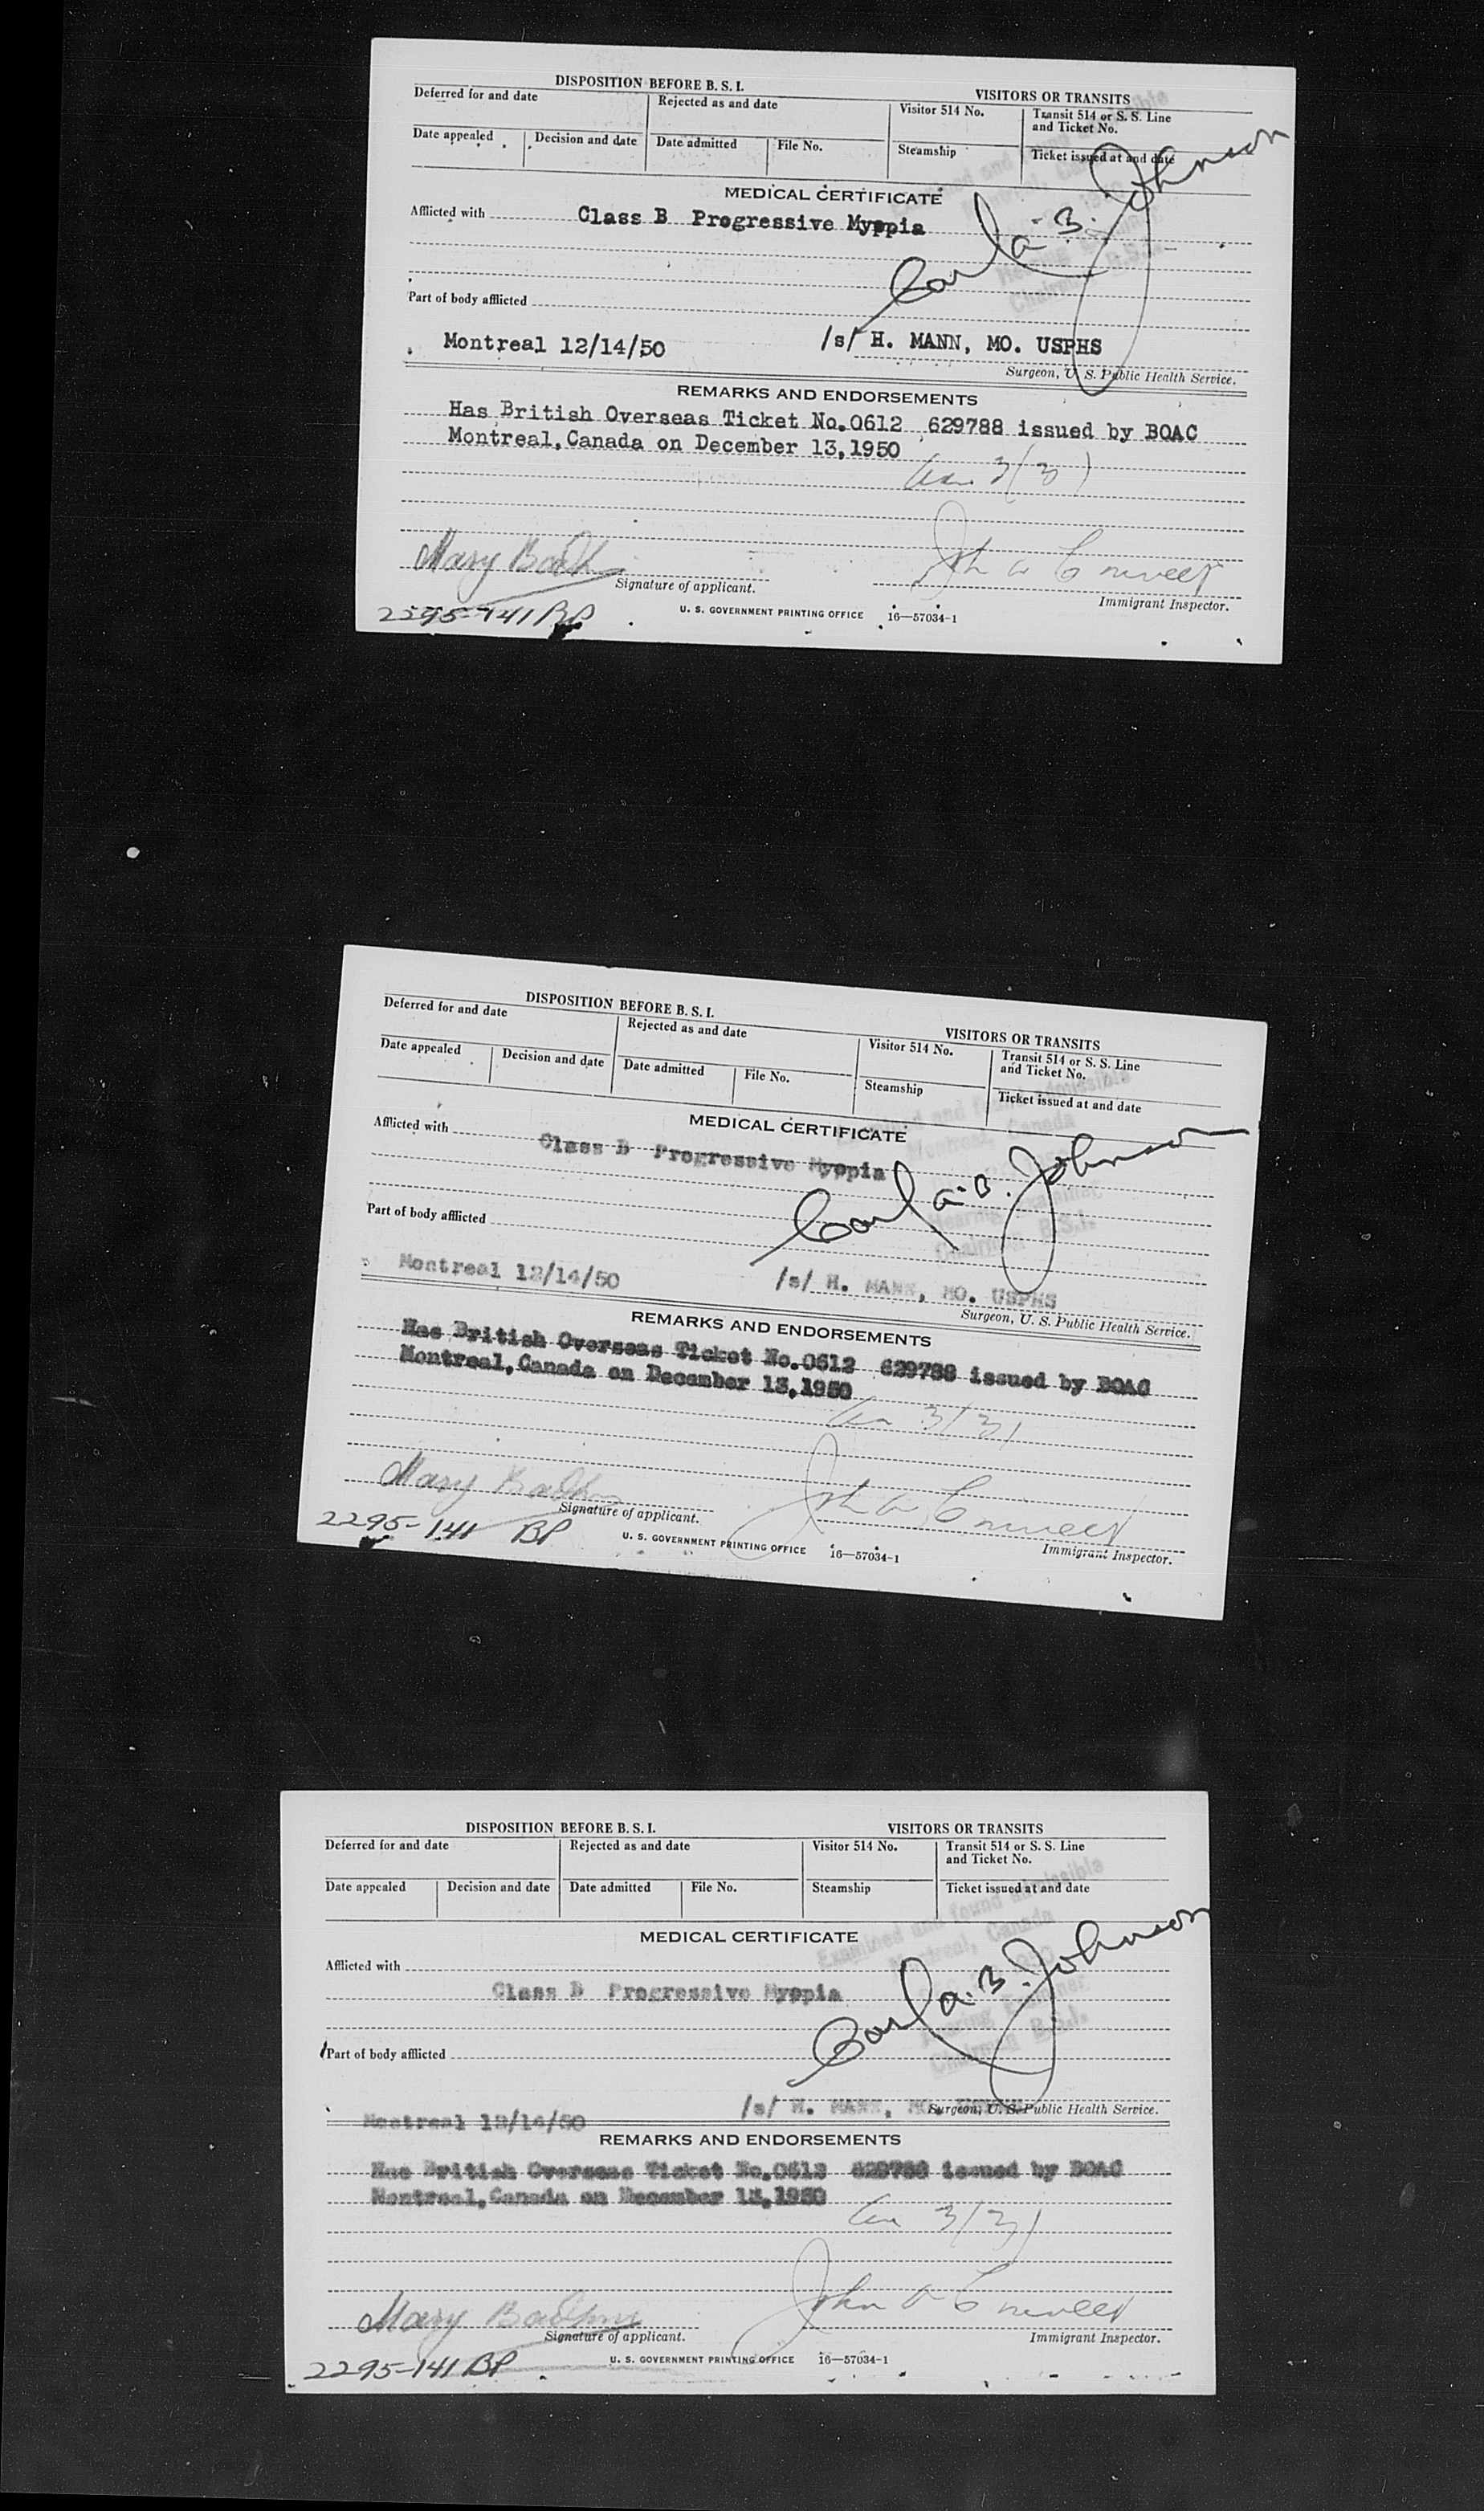 DISPOSITION BEFORE B. S. I.
VISITORS OR TRANSITS
Deferred for and date
Rejected as and date
Visitor 514 No.
Transit 514 or S. S. Line
and Ticket No.
Date appealed
Decision and date
Date admitted
File No.
Steamship
Ticket issued at and date
MEDICAL CERTIFICATE
Afflicted with
Class B Progressive Myopia
Carl A. B. Johnson
Part of body afflicted
Montreal 12/14/50
/s/ H. MANN, MO. USPHS
Surgeon, U. S. Public Health Service.
REMARKS AND ENDORSEMENTS
Has British Overseas Ticket No.0612 629788 issued by BOAC
Montreal,Canada on December 13,1950
3(3)
Mary
John
Signature of applicant.
Immigrant Inspector.
2295-141 BP
U. S. GOVERNMENT PRINTING OFFICE 16—57034-1
DISPOSITION BEFORE B. S. I.
VISITORS OR TRANSITS
Deferred for and date
Rejected as and date
Visitor 514 No.
Transit 514 or S. S. Line
and Ticket No.
Date appealed
Decision and date
Date admitted
File No.
Steamship
Ticket issued at and date
Examined and found admissible
Montreal, Canada
MEDICAL CERTIFICATE
Afflicted with
Class B Progressive Myopia
Carl A. B. Johnson
Hearing Examiner
Chairman B.S.I.
Part of body afflicted
Montreal 12/14/50
/s/ H. MANN, MO. USPHS
Surgeon, U. S. Public Health Service.
REMARKS AND ENDORSEMENTS
Has British Overseas Ticket No.0612 629788 issued by BOAC
Montreal,Canada on December 13,1950
3(3)
Mary
John
Signature of applicant.
Immigrant Inspector.
2295-141 BP
U. S. GOVERNMENT PRINTING OFFICE 16—57034-1
DISPOSITION BEFORE B. S. I.
VISITORS OR TRANSITS
Deferred for and date
Rejected as and date
Visitor 514 No.
Transit 514 or S. S. Line
and Ticket No.
Date appealed
Decision and date
Date admitted
File No.
Steamship
Ticket issued at and date
Examined and found admissible
Montreal, Canada
MEDICAL CERTIFICATE
Afflicted with
Class B Progressive Myopia
Carl A. B. Johnson
Chairman B.S.I.
Part of body afflicted
Montreal 12/14/50
/s/ H. MANN, MO.
Surgeon, U. S. Public Health Service.
REMARKS AND ENDORSEMENTS
Has British Overseas Ticket No.0612 629788 issued by BOAC
Montreal,Canada on December 13,1950
3(3)
Mary
John
Signature of applicant.
Immigrant Inspector.
2295-141 BP
U. S. GOVERNMENT PRINTING OFFICE 16—57034-1